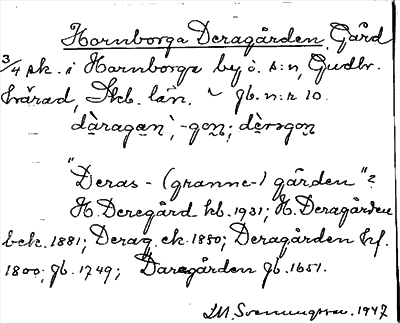 Hornborga Deragården, Gård
3/4 sk. i Hornborga by o. s:n, Gudhr.
härad, Skb. län. ~ Jb. n:r 10.
dàragan, -gon; dèrsgon
"Deras- (granne-) gården"?
H. Deregård kb. 1931; H. Deragården
bek. 1881; Derag. ek. 1880; Deragården hf.
1800, Jb. 1749; Daragården Jb. 1651.
1947